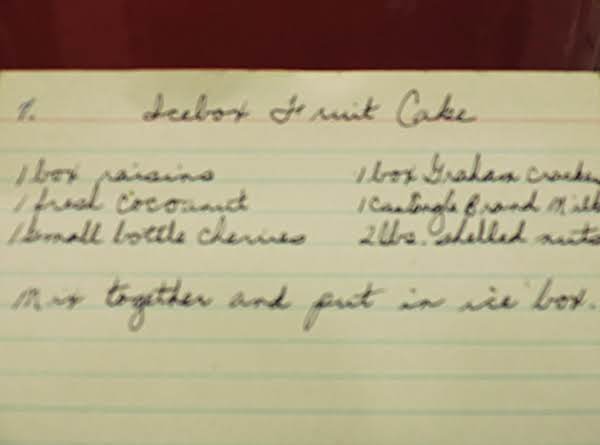 1. Icebox Fruit Cake
1 box raisins 1 box Graham cracker
1 fresh cocoanut 1 can Eagle Brand Milk
1 small bottle cherries 2 lbs. shelled nuts
Mix together and put in ice box.